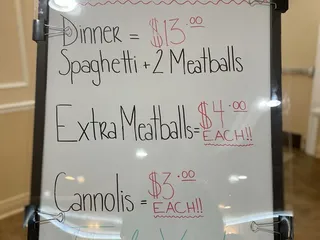 Dinner = $13.00
Spaghetti + 2 Meatballs
Extra Meatballs = $4.00
EACH!!
Cannolis = $3.00
EACH!!